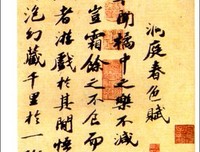 洞庭春色賦
吾聞橘中之樂不減
豈霜餘之不食而
者游戲於其間悟
泡幻藏千里於一